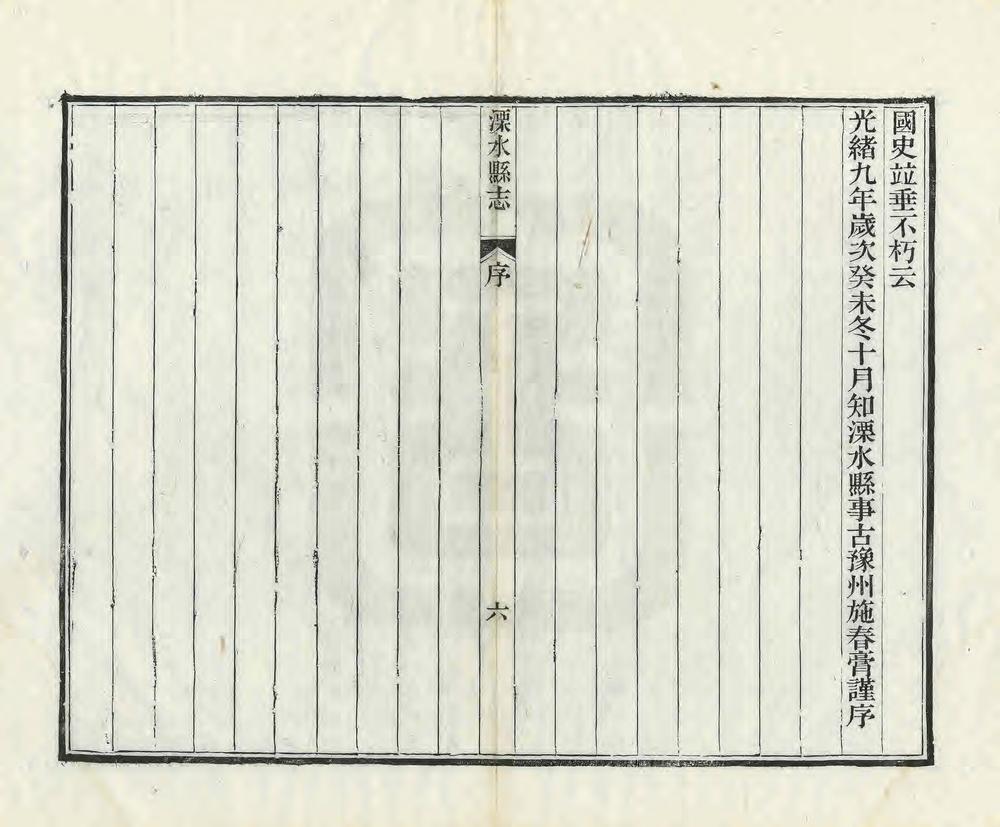 國史竝垂不朽云
光緒九年歲次癸未冬十月知溧水縣事古豫州施春膏謹序
溧水縣志
序
六